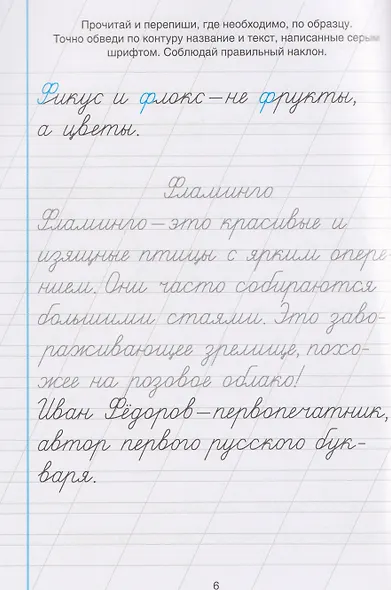 Прочитай и перепиши, где необходимо, по образцу.
Точно обведи по контуру название и текст, написанные серым
шрифтом. Соблюдай правильный наклон.
Фикус и флокс – не фрукты,
а цветы.
Фламинго
Фламинго – это красивые и
изящные птицы с ярким опере-
нием. Они часто собираются
большими стаями. Это заво-
раживающее зрелище, похо-
жее на розовое облако!
Иван Фёдоров – первопечатник,
автор первого русского бук-
варя.
6